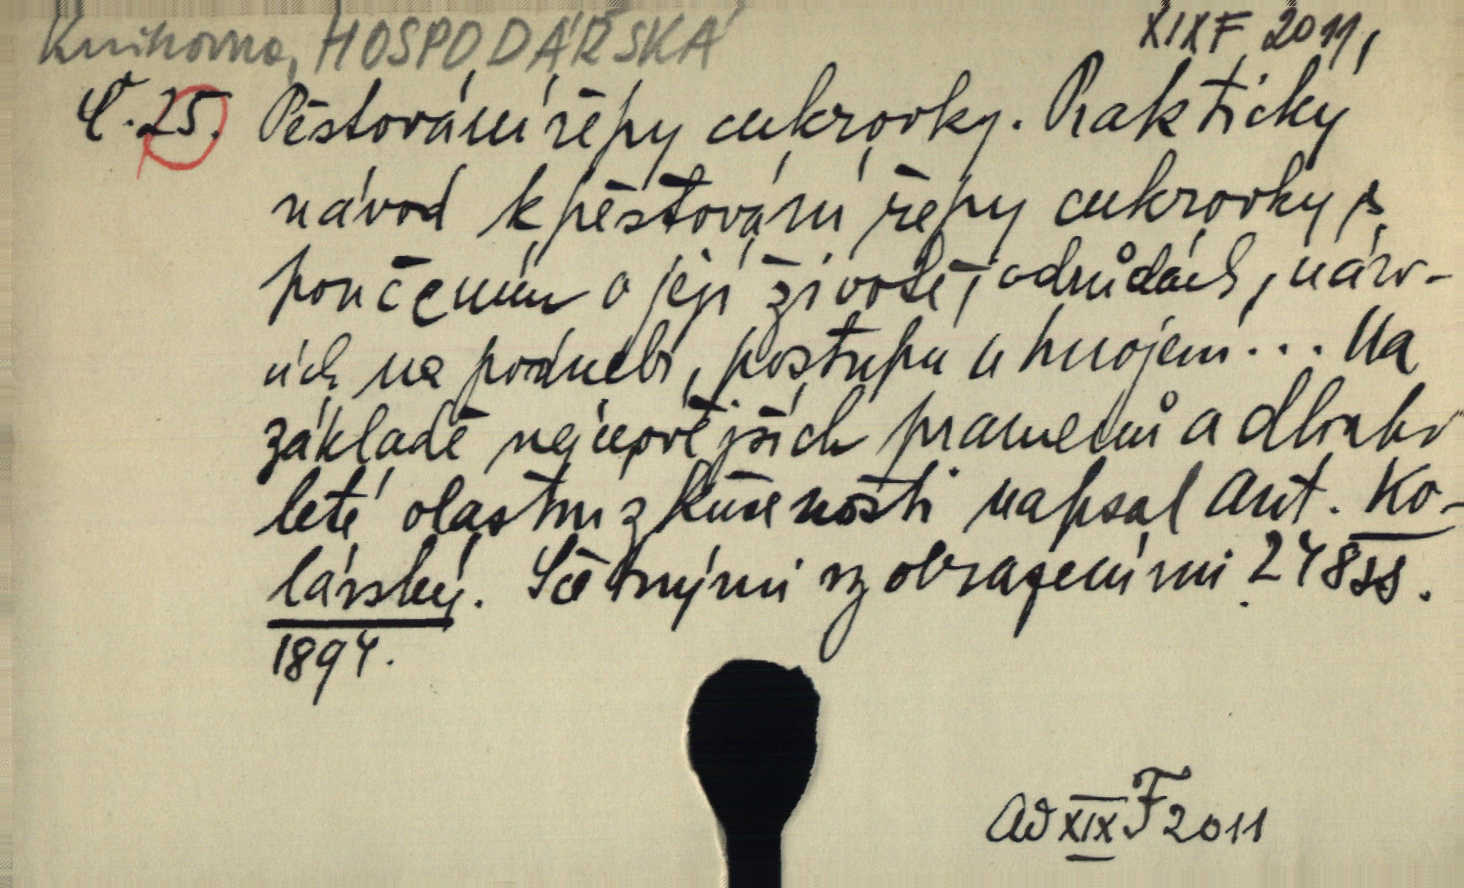 Knihovna, HOSPODÁŘSKÁ XIX F 2011,
Č. 25. Pěstování řepy cukrovky. Praktický
návod k pěstování řepy cukrovky s
poučením o její životě, odrůdách, náro-
cích na podnebí, postupu a hnojení... Na
základě nejnovějších pramenů a dlouho
leté vlastní zkušenosti napsal Ant. Ko-
lárský. S četnými vyobrazeními. 248 ss.
1894.
Ad XIX F 2011